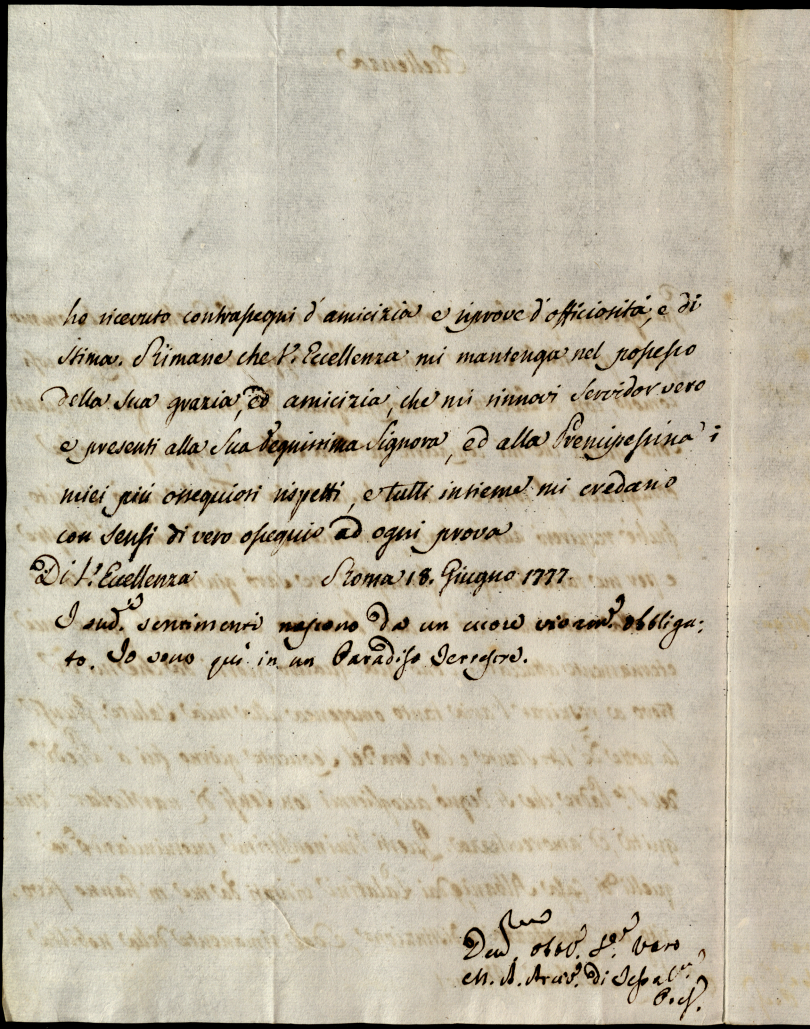 ho ricevuto contrasegni d'amicizia e riprove d'officiosità, e di
stima. Rimane che V.ª Eccellenza mi mantenga nel possesso
della sua grazia, ed amicizia, che mi rinnovi servidor vero
e presenti alla Sua degnissima Signora, ed alla Principessina i
miei più ossequiosi rispetti, e tutti insieme mi credano
con sensi di vero ossequio ad ogni prova
Di V.ª Eccellenza Roma 18. Giugno 1777.
I sud.ⁱ sentimenti nascono da un cuore obbliga:
to. Io sono qui in un Paradiso Terrestre.
Dev.ᵐᵒ Obb.ᵐᵒ S.ʳ Vero
M. A. Arciv.º di